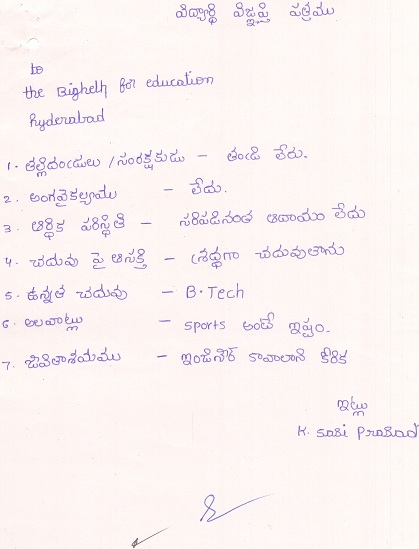 విద్యార్థి విజ్ఞప్తి పత్రము
to
the Bighelh for education
hyderabad
1. తల్లిదండులు / సంరక్షకుడు - తండి లేరు.
2. అంగవైకల్యము - లేదు.
3. ఆర్థిక పరిస్థితి - సరిపడినంత ఆదాయం లేదు
4. చదువు పై ఆసక్తి - శ్రద్ధగా చదువుతాను
5. ఉన్నత చదువు - B.Tech
6. అలవాట్లు - sports అంటే ఇష్టం.
7. జీవితాశయము - ఇంజినీర్ కావాలని కోరిక
ఇట్లు
K. Sasi Prasad